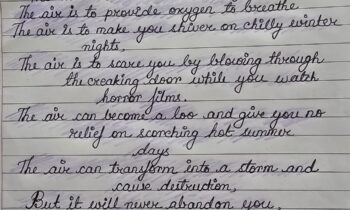 The air is to provide oxygen to breathe
The air is to make you shiver on chilly winter
nights,
The air is to scare you by blowing through
the creaking door while you watch
horror films.
The air can become a loo and give you no
relief on scorching hot summer
days
The air can transform into a storm and
cause destruction,
But it will never abandon you,